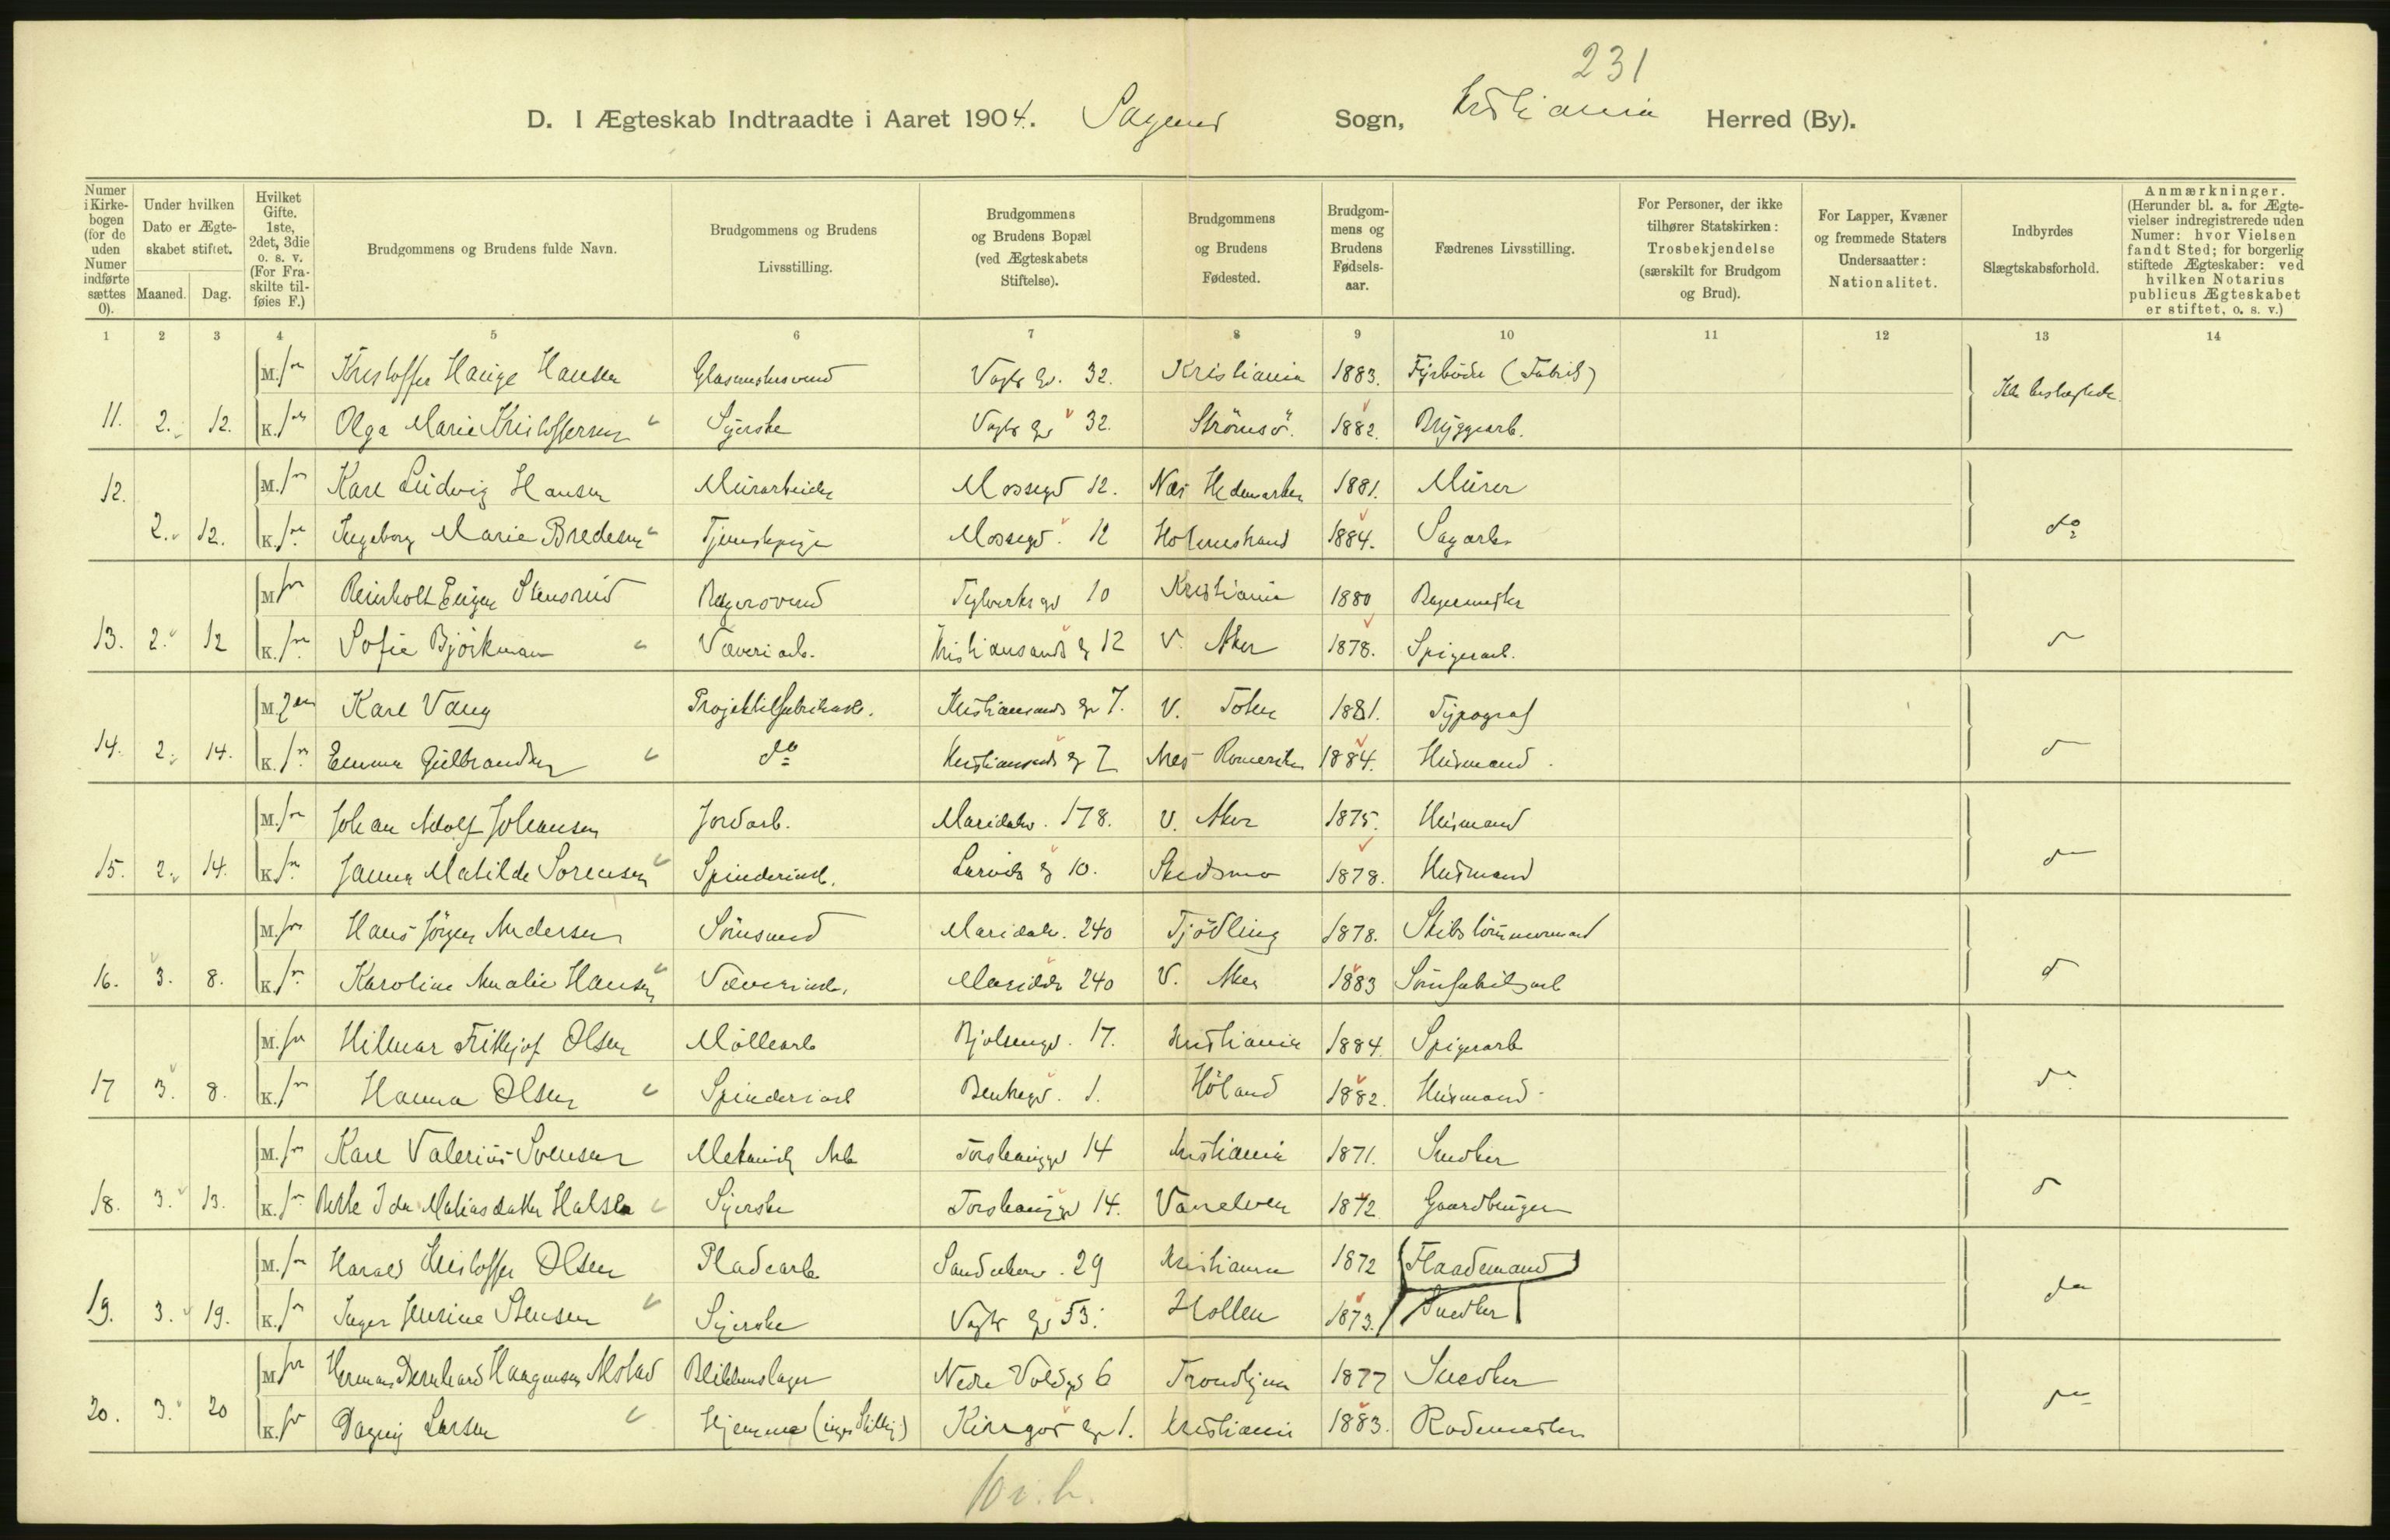 231
D. I Ægteskab Indtraadte i Aaret 1904. Sagenes Sogn, Kristiania Herred (By).
Numer i Kirkebogen (for de uden Numer indførte sættes 0).
Under hvilken Dato er Ægteskabet stiftet.
Maaned. Dag.
Hvilket Gifte. 1ste, 2det, 3die o. s. v. (For Fraskilte tilføies F.)
Brudgommens og Brudens fulde Navn.
Brudgommens og Brudens Livsstilling.
Brudgommens og Brudens Bopæl (ved Ægteskabets Stiftelse).
Brudgommens og Brudens Fødested.
Brudgommens og Brudens Fødselsaar.
Fædrenes Livsstilling.
For Personer, der ikke tilhører Statskirken: Trosbekjendelse (særskilt for Brudgom og Brud).
For Lapper, Kvæner og fremmede Staters Undersaatter: Nationalitet.
Indbyrdes Slægtskabsforhold.
Anmærkninger. (Herunder bl. a. for Ægtevielser indregistrerede uden Numer: hvor Vielsen fandt Sted; for borgerlig stiftede Ægteskaber: ved hvilken Notarius publicus Ægteskabet er stiftet, o. s. v.)
1 2 3 4 5 6 7 8 9 10 11 12 13 14
M. Kristoffer Hauge Hansen Vogts g. 32. Kristiania 1883. Fyrbøder (Fabrik)
11. 2. 12. K. Olga Marie Kristoffersen Syerske Vogts g. 32. Strømsö. 1882. Bryggearb.
12. M. Karl Ludvig Hansen Murarbeider Mossegd 12. Nes Hedemarken 1881. Murer
2. 12. K. Ingeborg Marie Bredesen Tjenestepige Mossegd. 12 Holmestrand 1884. Sagarb. do
M. Reinholt Eugen Stensrud Bagersvend Teglverksgd 10 Kristiania 1880 Bagermester
13. 2. 12 K. Sofie Björkman Væveriarb. Kristiansands g 12 V. Aker 1878. Spigerarb. d
M. Karl Vang Projektilfabrikarb. Kristiansands g 7. V. Toten 1881. Typograf
14. 2. 14. K. Emma Gulbrandsen do Kristiansands g 7 Nes Romerike 1884. Husmand d
M. Johan Adolf Johansen Jordarb. Maridalsv. 178. V. Aker 1875. Husmand
15. 2. 14. K. Janna Matilde Sorensen Spinderiarb. Larviks g 10. Skedsmo 1878. Husmand
M. Hans Jörgen Andersen Maridalsv. 240 Tjödling 1878. Skibstömmermand
16. 3. 8. K. Karoline Amalie Hansen Væveriarb. Maridalsv 240 V. Aker 1883 d
M. Hilmar Fritjof Olsen Möllearb Bjølsengd. 17. Kristiania 1884. Spigerarb
17 3. 8. K. Hanna Olsen Spinderiarb 1. Höland 1882. Husmand
M. Karl Valerius Svensen Mekanisk Arb Torshauggd 14 Kristiania 1871. Snedker
18. 3. 13. K. Ida Matiasdatter Syerske Torshauggd 14. Vanelven 1872 Gaardbruger d
M. Harald Kristoffer Olsen Pladearb Sandakerv. 29 Kristiania 1872 Flaademand
19. 3. 19. K. Inger Jensine Stensen Syerske Vogts g 53. Hollen 1873. Snedker
M. Herman Bernhard Haagensen Blikkenslager Nedre Voldgd 6 Trondhjem 1877 Snedker
20. 3. 20 K. Dagny Larsen Hjemme (ingen Stilling) 1. Kristiania 1883. Rodemester